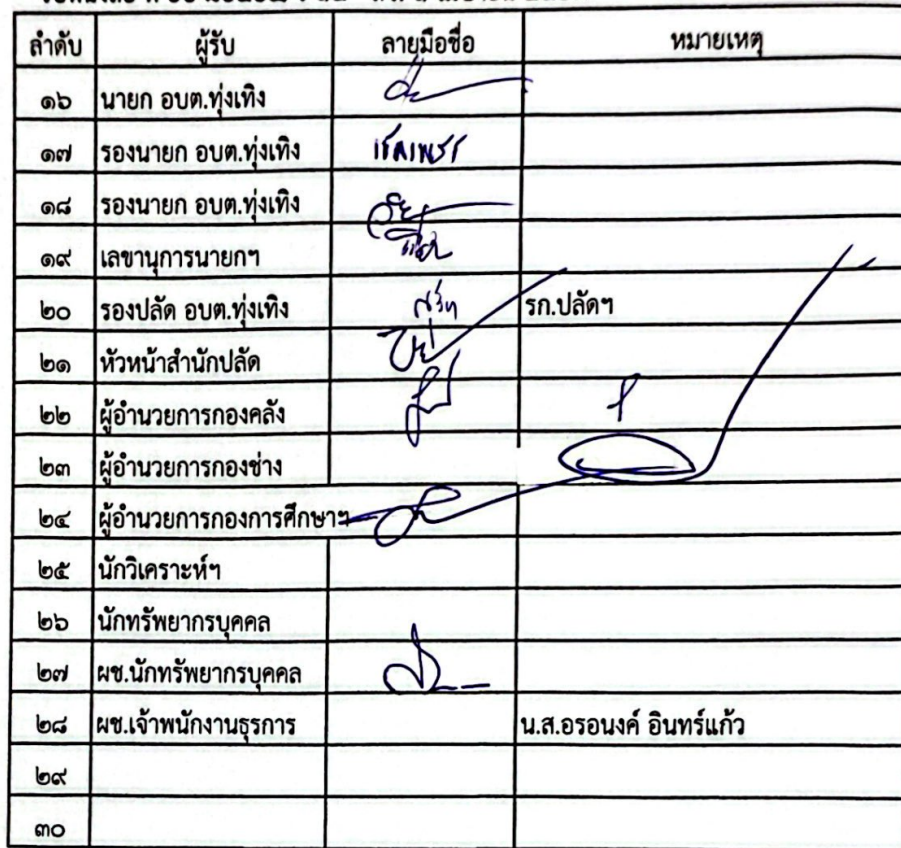 ลำดับ ผู้รับ ลายมือชื่อ หมายเหตุ
๑๖ นายก อบต.ทุ่งเทิง
๑๗ รองนายก อบต.ทุ่งเทิง
๑๘ รองนายก อบต.ทุ่งเทิง
๑๙ เลขานุการนายกฯ
๒๐ รองปลัด อบต.ทุ่งเทิง รก.ปลัดฯ
๒๑ หัวหน้าสำนักปลัด
๒๒ ผู้อำนวยการกองคลัง
๒๓ ผู้อำนวยการกองช่าง
๒๔ ผู้อำนวยการกองการศึกษาฯ
๒๕ นักวิเคราะห์ฯ
๒๖ นักทรัพยากรบุคคล
๒๗ ผช.นักทรัพยากรบุคคล
๒๘ ผช.เจ้าพนักงานธุรการ น.ส.อรอนงค์ อินทร์แก้ว
๒๙
๓๐